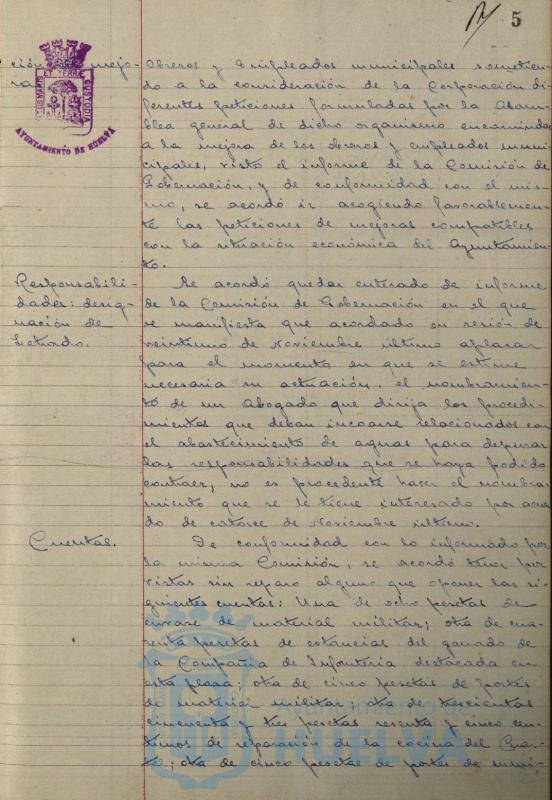 5
ción de mejo-
ra
Obreros y Empleados municipales sometien-
do a la consideración de la Corporación di-
ferentes peticiones formuladas por la Asam-
blea general de dicho organismo encaminadas
a la mejora de los obreros y empleados muni-
cipales, visto el informe de la Comisión de
Gobernación, y de conformidad con el mis-
mo, se acordó ir acogiendo favorablemen-
te las peticiones de mejoras compatibles
con la situación económica del Ayuntamien-
to.
AYUNTAMIENTO DE HUELVA
Responsabili-
dades: desig-
nación de
Letrado.
Se acordó quedar enterado de informe
de la Comisión de Gobernación en el que
se manifiesta que acordado en sesión de
veintiuno de Noviembre último aplazar
para el momento en que se estime
necesaria su actuación, el nombramien-
to de un Abogado que dirija los procedi-
mientos que deban incoarse relacionados con
el abastecimiento de aguas para depurar
las responsabilidades que se haya podido
contraer, no es procedente hacer el nombra-
miento que se le tiene interesado por acuer-
do de catorce de Noviembre último.
Cuentas.
De conformidad con lo informado por
la misma Comisión, se acordó tener por
vistas sin reparo alguno que oponer las si-
guientes cuentas: Una de ocho pesetas de
envase de material militar; otra de cua-
renta pesetas de estancias del ganado de
la Compañía de Infantería destacada en
esta plaza; otra de cinco pesetas de portes
de material militar; otra de trescientas
cincuenta y tres pesetas sesenta y cinco cén-
timos de reparación de la cocina del Cuar-
tel; otra de cinco pesetas de portes de muni-
Ayuntamiento
HUELVA